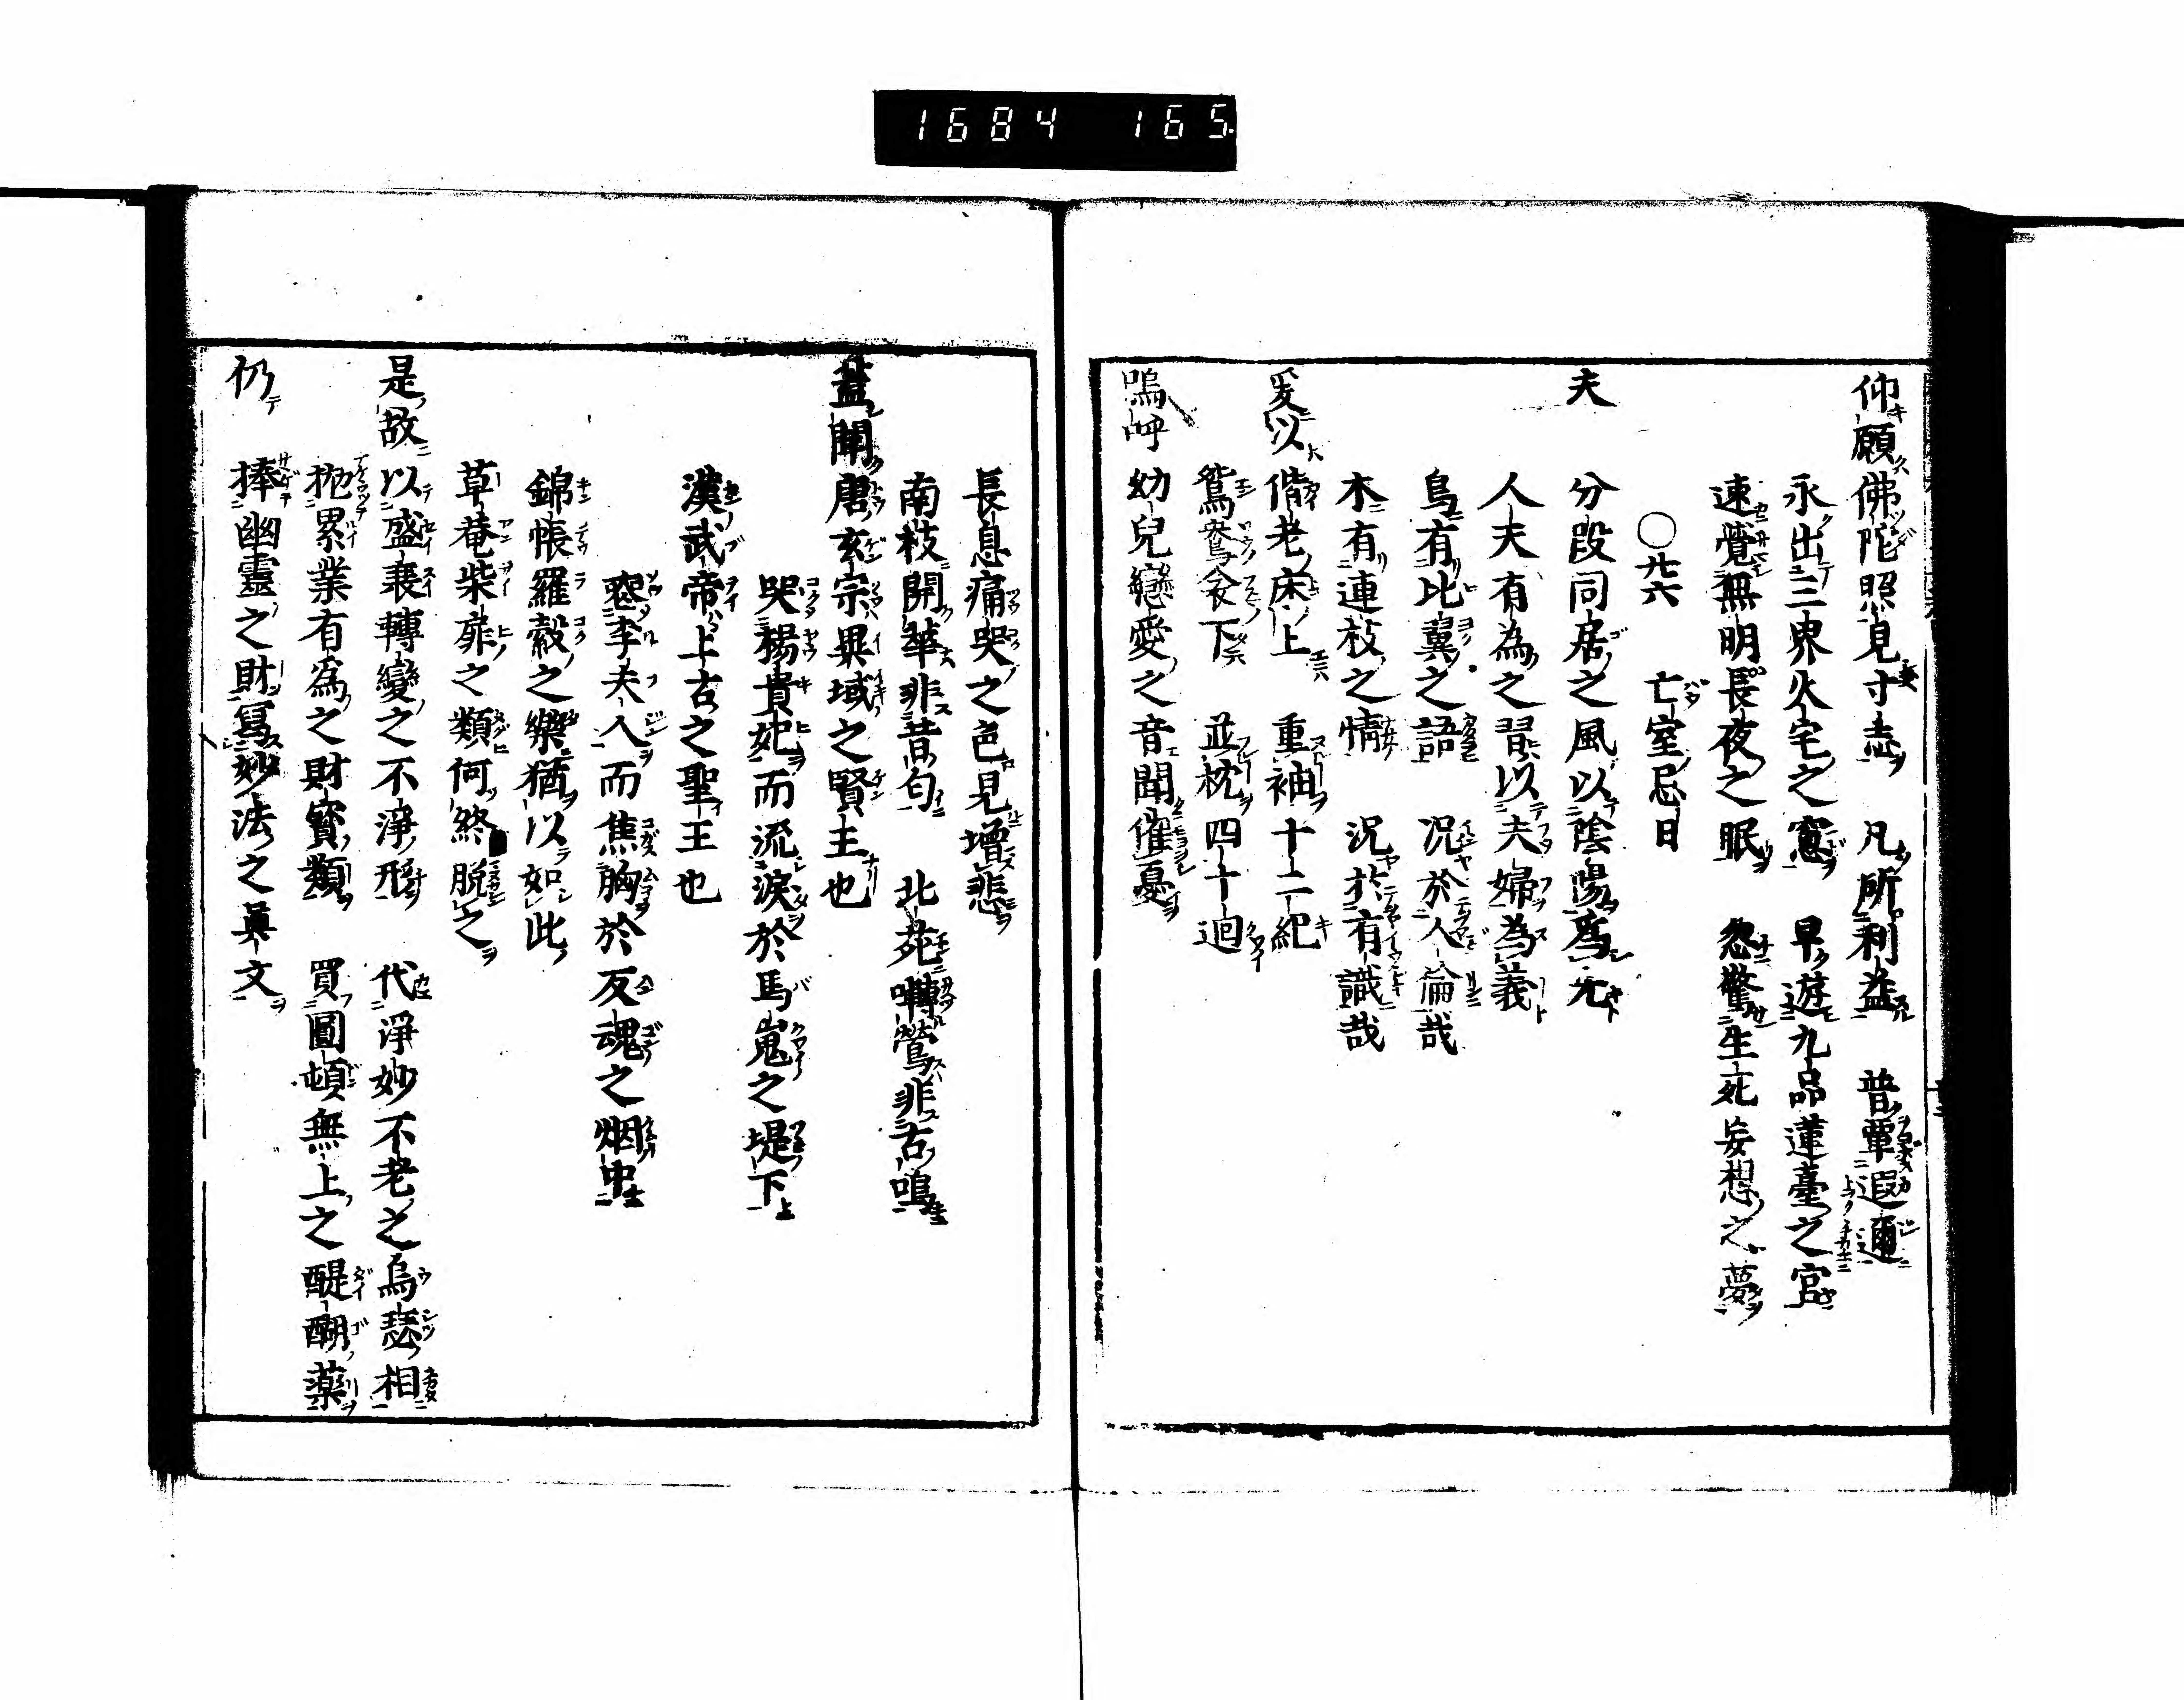 1684 165
仰願佛陀照見寸志 凡所利益 普覃遐邇
永出三界火宅之窓 早遊九品蓮臺之宮
速覺無明長夜之眠 忽驚生死妄想之夢
○廿六 亡室忌日
夫 分段同居之風以陰陽為元
人夫有為之習以夫婦為義
鳥有比翼之語 況於人倫哉
木有連枝之情 況於有識哉
爰以 偕老床上 重袖十二紀
鴛鴦衾下 並枕四十廻
嗚呼 幼兒戀愛之音聞催憂
長息痛哭之色見增悲
南枝開華非昔匂 北苑囀鶯非古鳴
蓋聞 唐玄宗異域之賢主也
哭楊貴妃而流淚於馬嵬之堤下
漢武帝上古之聖王也
惣李夫人而焦胸於反魂之烟中
錦帳羅縠之樂猶以如此
草菴柴扉之類何終脱之
是故 以盛衰轉變之不淨形 代淨妙不老之烏瑟相
抛累業有為之財寳類 買圓頓無上之醍醐藥
仍 捧幽靈之財 寫妙法之眞文